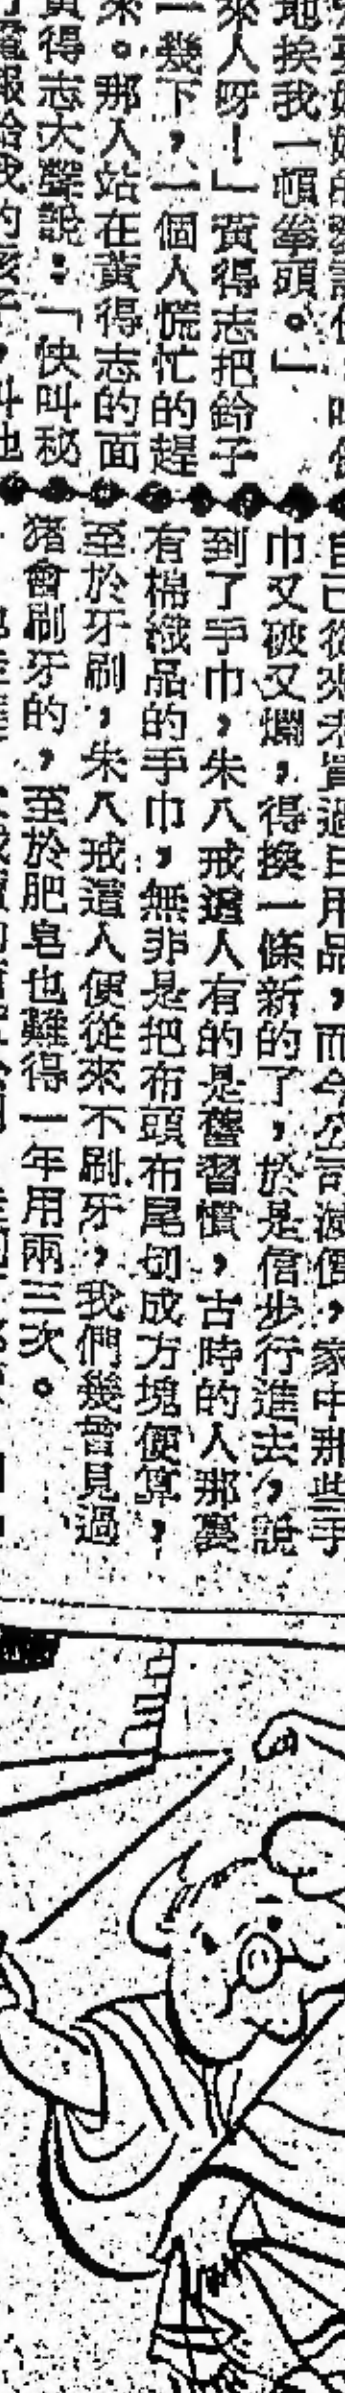 地挨我一頓拳頭。」
來人呀！」黃得志把鈴子
一幾下，一個人慌忙的趕
來。那人站在黃得志的面
黃得志大聲說：「快叫秘
自己從來未買過日用品，而今公司減價，家中那些手
巾又破又爛，得換一條新的了，於是信步行進去，說
到了手巾，朱八戒這人有的是舊習慣，古時的人那裏
有棉織品的手巾，無非是把布頭布尾切成方塊便算，
至於牙刷，朱八戒這人便從來不刷牙，我們幾曾見過
豬會刷牙的，至於肥皂也難得一年用兩三次。